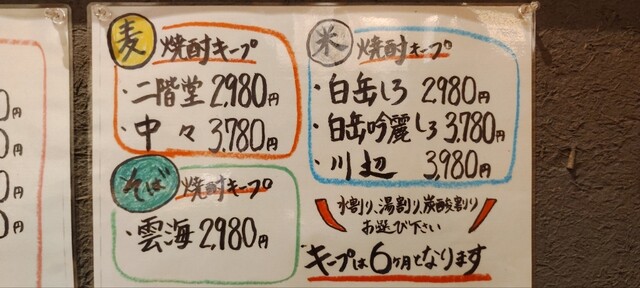 麦 焼酎キープ
・二階堂 2,980円
・中々 3,780円
そば 焼酎キープ
・雲海 2,980円
米 焼酎キープ
・白岳しろ 2,980円
・白岳吟麗しろ 3,780円
・川辺 3,980円
水割り、湯割り、炭酸割り
お選び下さい
キープは6ヶ月となります
円
円
円
円